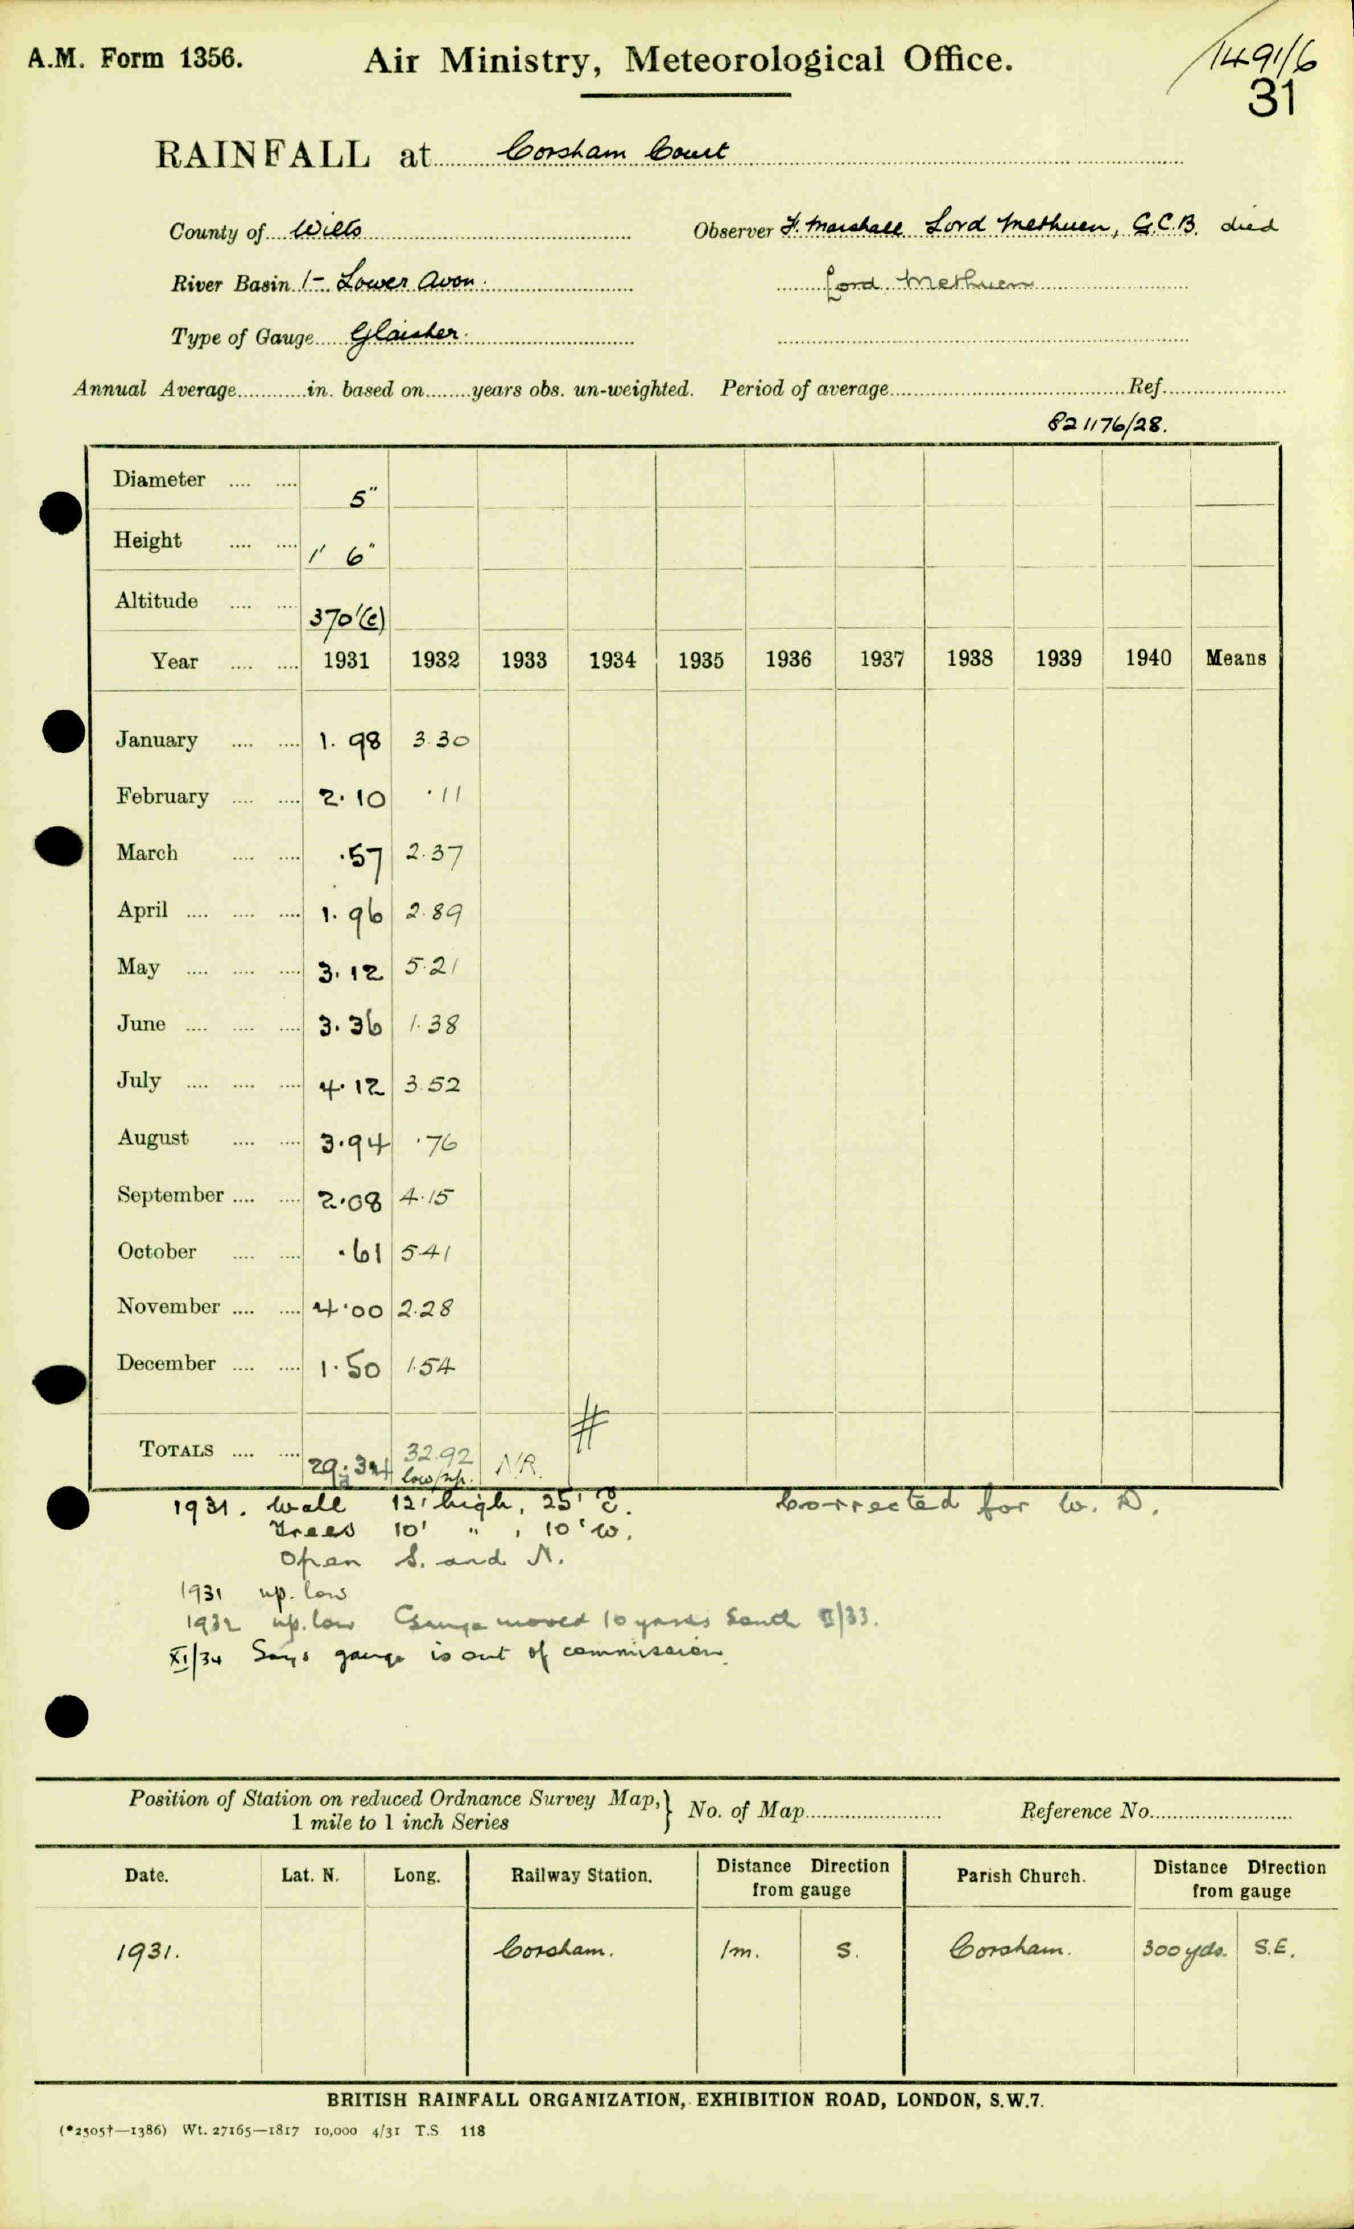 A.M. Form 1356.
Air Ministry, Meteorological Office.
1491/6
31
RAINFALL at Corsham Court
County of Wilts
Observer F. Marshall Lord Methuen, G.C.B. died
River Basin 1- Lower Avon.
Lord Methuen
Type of Gauge Glaisher.
Annual Average............in. based on........years obs. un-weighted. Period of average........................................Ref.....................
821176/28.
Diameter .... .... 5"
Height .... .... 1' 6"
Altitude .... .... 370'(c)
Year .... .... 1931 1932 1933 1934 1935 1936 1937 1938 1939 1940 Means
January .... .... 1.98 3.30
February .... .... 2.10 .11
March .... .... .57 2.37
April .... .... .... 1.96 2.89
May .... .... .... 3.12 5.21
June .... .... .... 3.36 1.38
July .... .... .... 4.12 3.52
August .... .... 3.94 .76
September .... .... 2.08 4.15
October .... .... .61 5.41
November .... .... 4.00 2.28
December .... .... 1.50 1.54
#
TOTALS .... .... 29.34 32.92 N.R.
low/up.
1931. Wall 12' high, 25' E. Corrected for W. D.
Trees 10' " , 10' W.
Open S. and N.
1931 up. low
1932 up. low Gauge moved 10 yards South II/33.
XI/34 Says gauge is out of commission.
Position of Station on reduced Ordnance Survey Map, } No. of Map........................ Reference No.........................
1 mile to 1 inch Series
Date. Lat. N. Long. Railway Station. Distance Direction from gauge Parish Church. Distance Direction from gauge
1931. Corsham. 1m. S. Corsham. 300 yds. S.E.
BRITISH RAINFALL ORGANIZATION, EXHIBITION ROAD, LONDON, S.W.7.
(*2505†—1386) Wt. 27165—1817 10,000 4/31 T.S 118